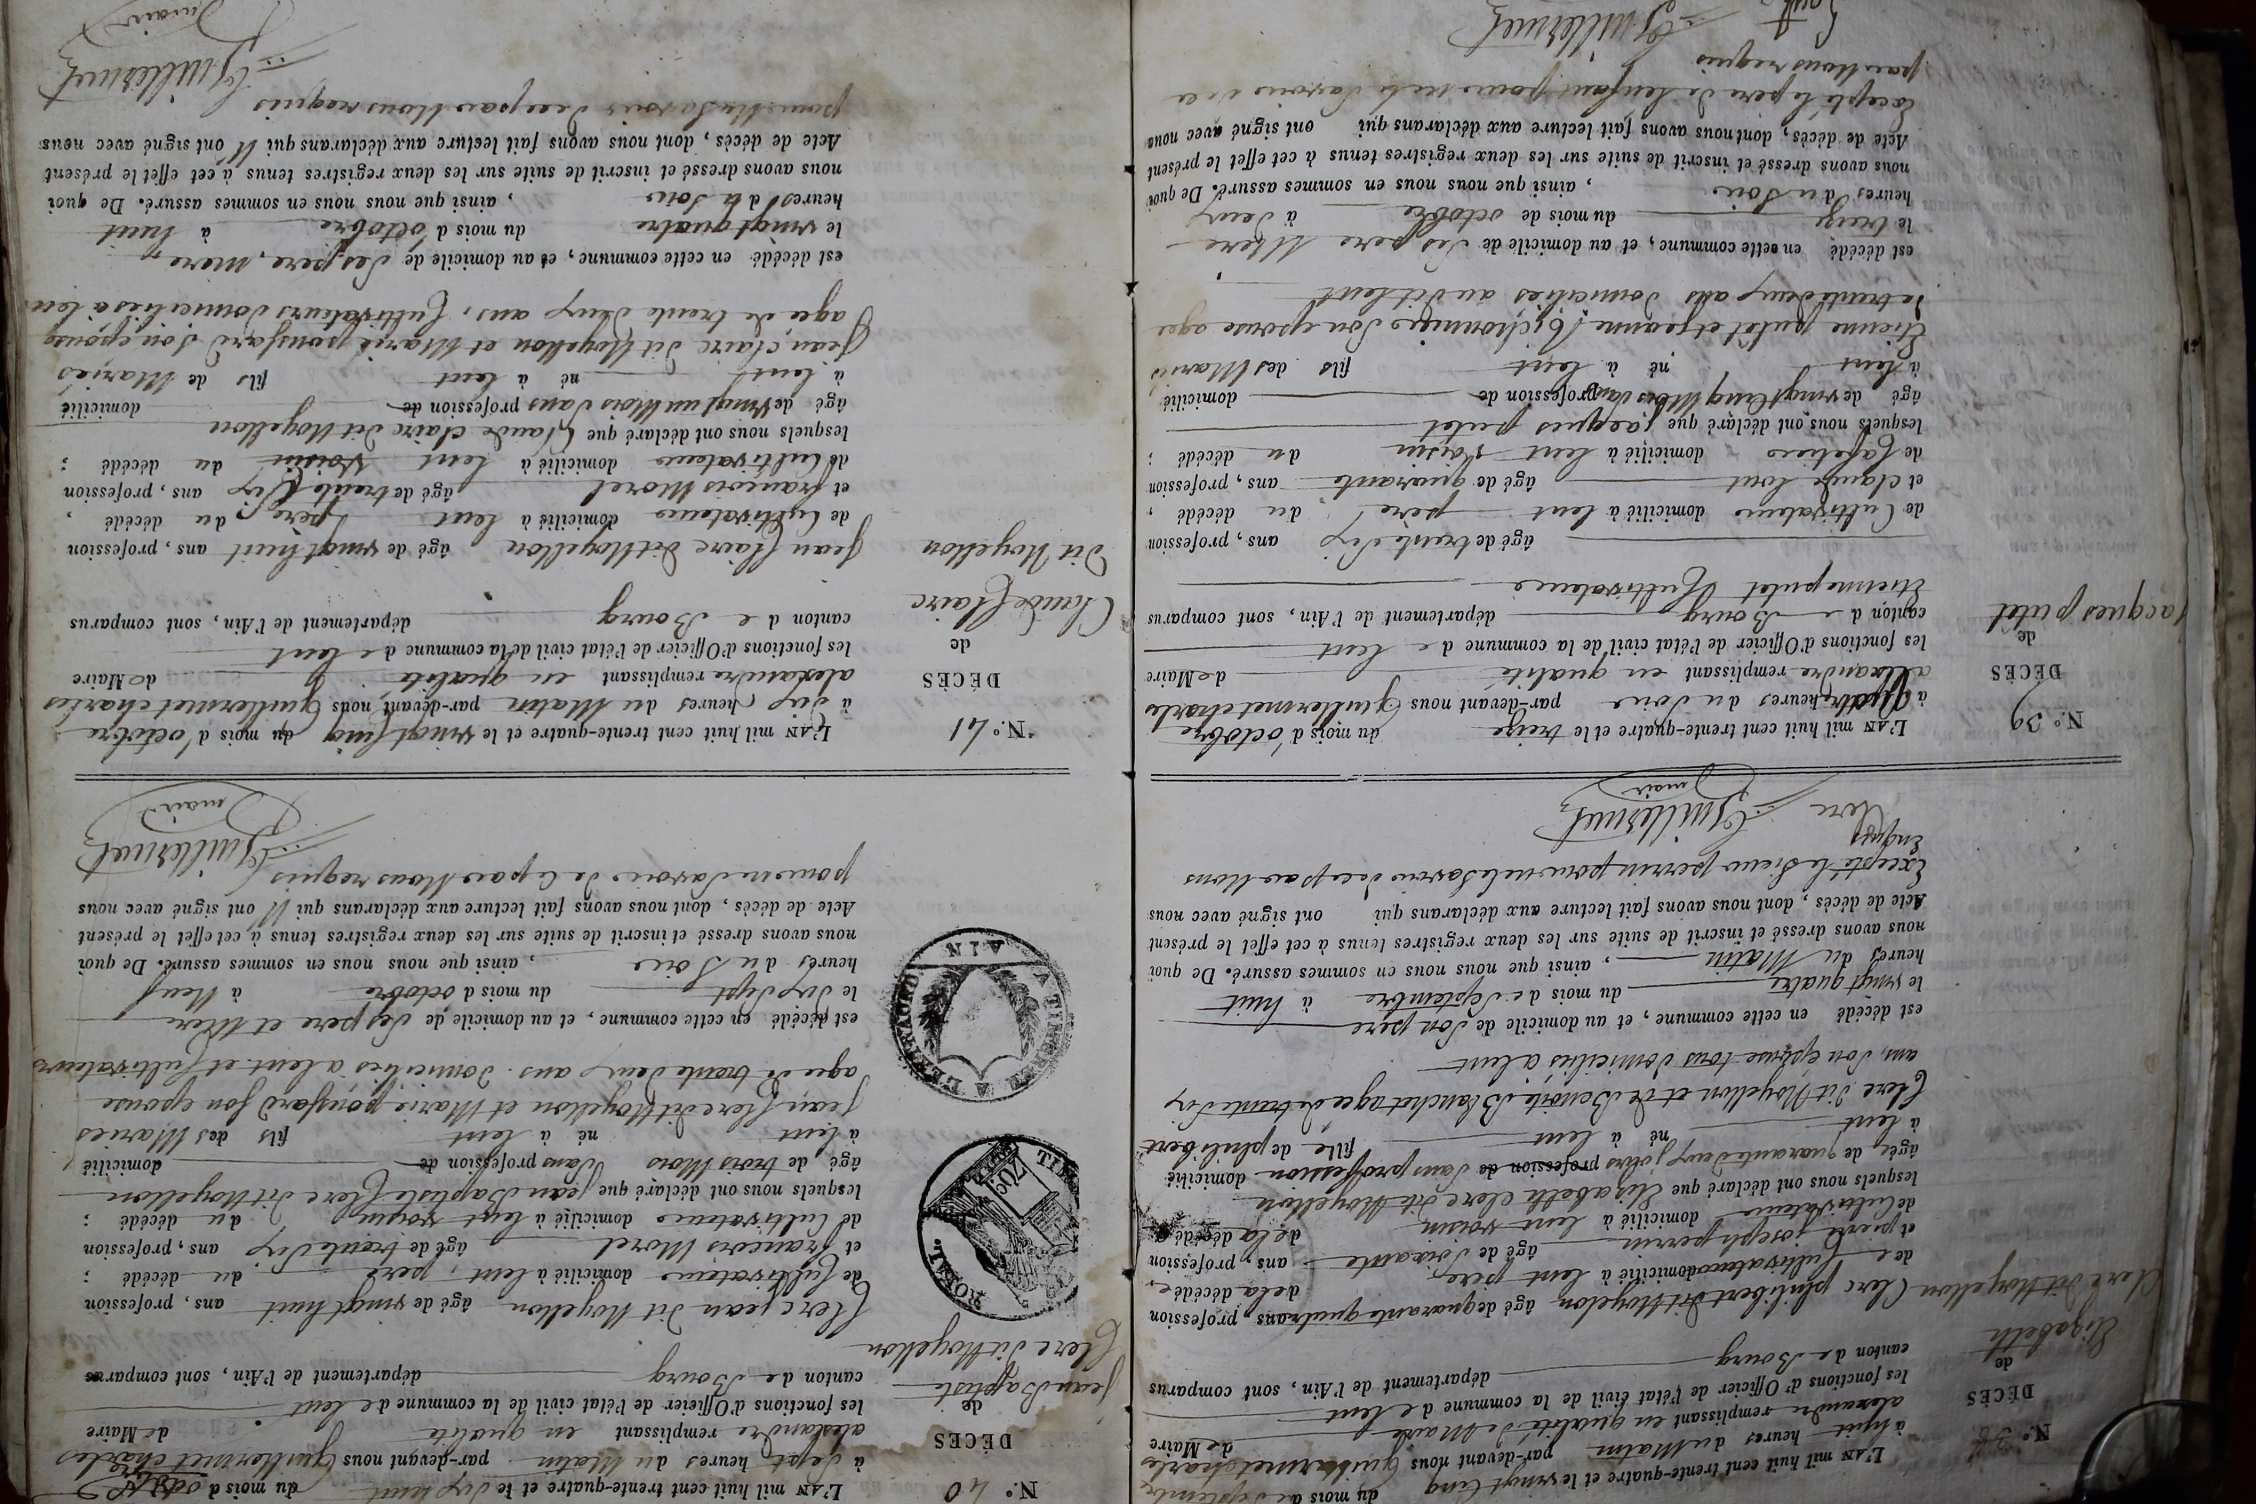 N.º 38
DÉCÈS
de
Elizabeth
Clerc dit Noyellon
L'AN mil huit cent trente-quatre et le vingt cinq du mois de septembre
à huit heures du Matin par-devant nous Guillermet charles
alexandre remplissant en qualité de Maire de Maire
les fonctions d'Officier de l'état civil de la commune de lent
canton de Bourg département de l'Ain, sont comparus
Clerc philibert dit Noyelon âgé de quarante quatre ans, profession
de Cultivateur domicilié à lent père de la décédée
et pierre joseph perrin âgé de soixante ans, profession
de Cultivateur domicilié à lent voisin de la décédé
lesquels nous ont déclaré que Elizabeth Clerc dit Noyellon
âgé de quarante deux jours profession de sans proffession domicilié
à lent né à lent fille de philibert
Clerc dit Noyellon et de Benoite Blanchet agee de trente six
ans, son epouse tous domiciliés a lent
est décédée en cette commune, et au domicile de son pere
le vingt quatre du mois de septembre à huit
heures du Matin, ainsi que nous nous en sommes assuré. De quoi
nous avons dressé et inscrit de suite sur les deux registres tenus à cet effet le présent
Acte de décès, dont nous avons fait lecture aux déclarans qui ont signé avec nous
Excepté le sieur perrin pour ne le savoir de ce par Nous
Enquis
Clerc Guillermet
maire
N.º 39
DÉCÈS
de
Jacques putet
L'AN mil huit cent trente-quatre et le treize du mois d'octobre
à quatre heures du soir par-devant nous Guillermet charles
alexandre remplissant en qualité de Maire
les fonctions d'Officier de l'état civil de la commune de lent
canton de Bourg département de l'Ain, sont comparus
Etienne putet Cultivateur
âgé de trente six ans, profession
de Cultivateur domicilié à lent père du décédé,
et claude tout âgé de quarante ans, profession
de Cafetier domicilié à lent Voisin du décédé;
lesquels nous ont déclaré que jacques putet
âgé de vingt cinq Mois sans profession de domicilié
à lent né à lent fils des Mariés
Etienne putet et jeanne son epouse agee
de trente deux ans domiciliés au dit lent
est décédé en cette commune, et au domicile de ses pere Mere
le treize du mois de octobre à deux
heures du soir, ainsi que nous nous en sommes assuré. De quoi
nous avons dressé et inscrit de suite sur les deux registres tenus à cet effet le présent
Acte de décès, dont nous avons fait lecture aux déclarans qui ont signé avec nous
Excepté le pere de lenfant pour ne le savoir de ce
par Nous requis
tout Guillermet
N.º 40
DÉCÈS
de
jean Baptiste
Clerc dit Noyellon
L'AN mil huit cent trente-quatre et le dix huit du mois d'octobre
à sept heures du Matin par-devant nous Guillermet charles
alexandre remplissant en qualité de Maire
les fonctions d'Officier de l'état civil de la commune de lent
canton de Bourg département de l'Ain, sont comparus
Clerc jean dit Noyellon âgé de vingt huit ans, profession
de Cultivateur domicilié à lent, père du décédé;
et francois Morel âgé de trente six ans, profession
de Cultivateur domicilié à lent voisin du décédé;
lesquels nous ont déclaré que jean Baptiste Clerc dit Noyellon
âgé de trois Mois sans profession de domicilié
à lent né à lent fils des Mariés
jean Clerc dit Noyellon et Marie ponsard son epouse
agee de trente deux ans. domiciliés a lent et Cultivateurs
est décédé en cette commune, et au domicile de ses pere et Mere
le dix sept du mois d octobre à Neuf
heures du soir, ainsi que nous nous en sommes assuré. De quoi
nous avons dressé et inscrit de suite sur les deux registres tenus à cet effet le présent
Acte de décès, dont nous avons fait lecture aux déclarans qui N ont signé avec nous
pour ne savoir de ce par Nous requis
Guillermet
maire
TIMBRE ROYAL
A L'EXTRAORD.
AIN
N.º 41
DÉCÈS
de
Claude Claire
Dit Noyellon
L'AN mil huit cent trente-quatre et le vingt cinq du mois d'octobre
à dix heures du Matin par-devant nous Guillermet charles
alexandre remplissant en qualité de Maire
les fonctions d'Officier de l'état civil de la commune de lent
canton de Bourg département de l'Ain, sont comparus
jean Claire dit Noyellon âgé de vingt huit ans, profession
de Cultivateur domicilié à lent père du décédé,
et francois Morel âgé de trente six ans, profession
de Cultivateur domicilié à lent voisin du décédé;
lesquels nous ont déclaré que Claude claire dit Noyellon
âgé de vingt un Mois sans profession de domicilié
à lent né à lent fils de Mariés
jean claire dit Noyellon et Marie ponsard son epouse
agee de trente deux ans, Cultivateurs domiciliés a lent
est décédé en cette commune, et au domicile de ses pere, Mere,
le vingt quatre du mois d'octobre à huit
heures du soir, ainsi que nous nous en sommes assuré. De quoi
nous avons dressé et inscrit de suite sur les deux registres tenus à cet effet le présent
Acte de décès, dont nous avons fait lecture aux déclarans qui N ont signé avec nous
pour ne savoir de ce par Nous requis
Guillermet
maire